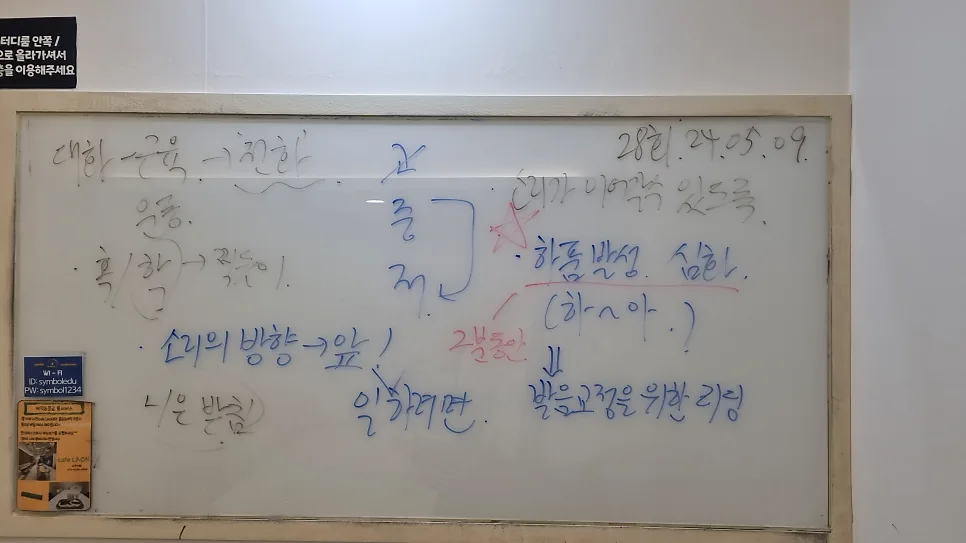 터디룸 안쪽 /
으로 올라가셔서
층을 이용해주세요
28회. 24. 05. 09.
대학 근육 → 천화
운동.
· 혹/학 →
고
중
저
· 소리가 이어질수 있도록.
· 하품 발성. 심화.
(하~아.)
2분동안
⇓
발음교정을 위한 리딩
· 소리의 방향 → 앞!
니은 받침)
일하려면.
WI-FI
ID: symboledu
PW: symbol1234
cafe LAON